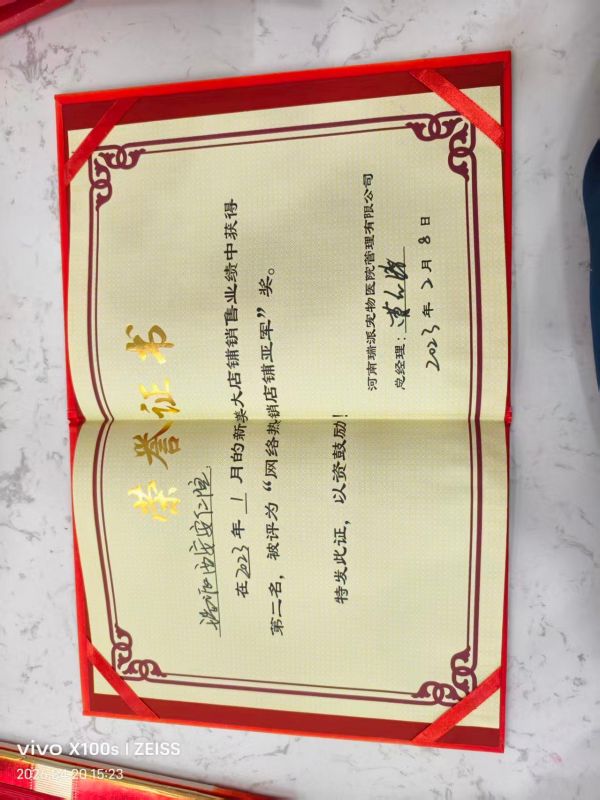 荣誉证书
瑞派西安安仁院
在2023年 1 月的新美大店铺销售业绩中获得
第二名，被评为“网络热销店铺亚军”奖。
特发此证，以资鼓励！
河南瑞派宠物医院管理有限公司
总经理：
2023年2月8日
vivo X100s | ZEISS
2026-04-20 15:23